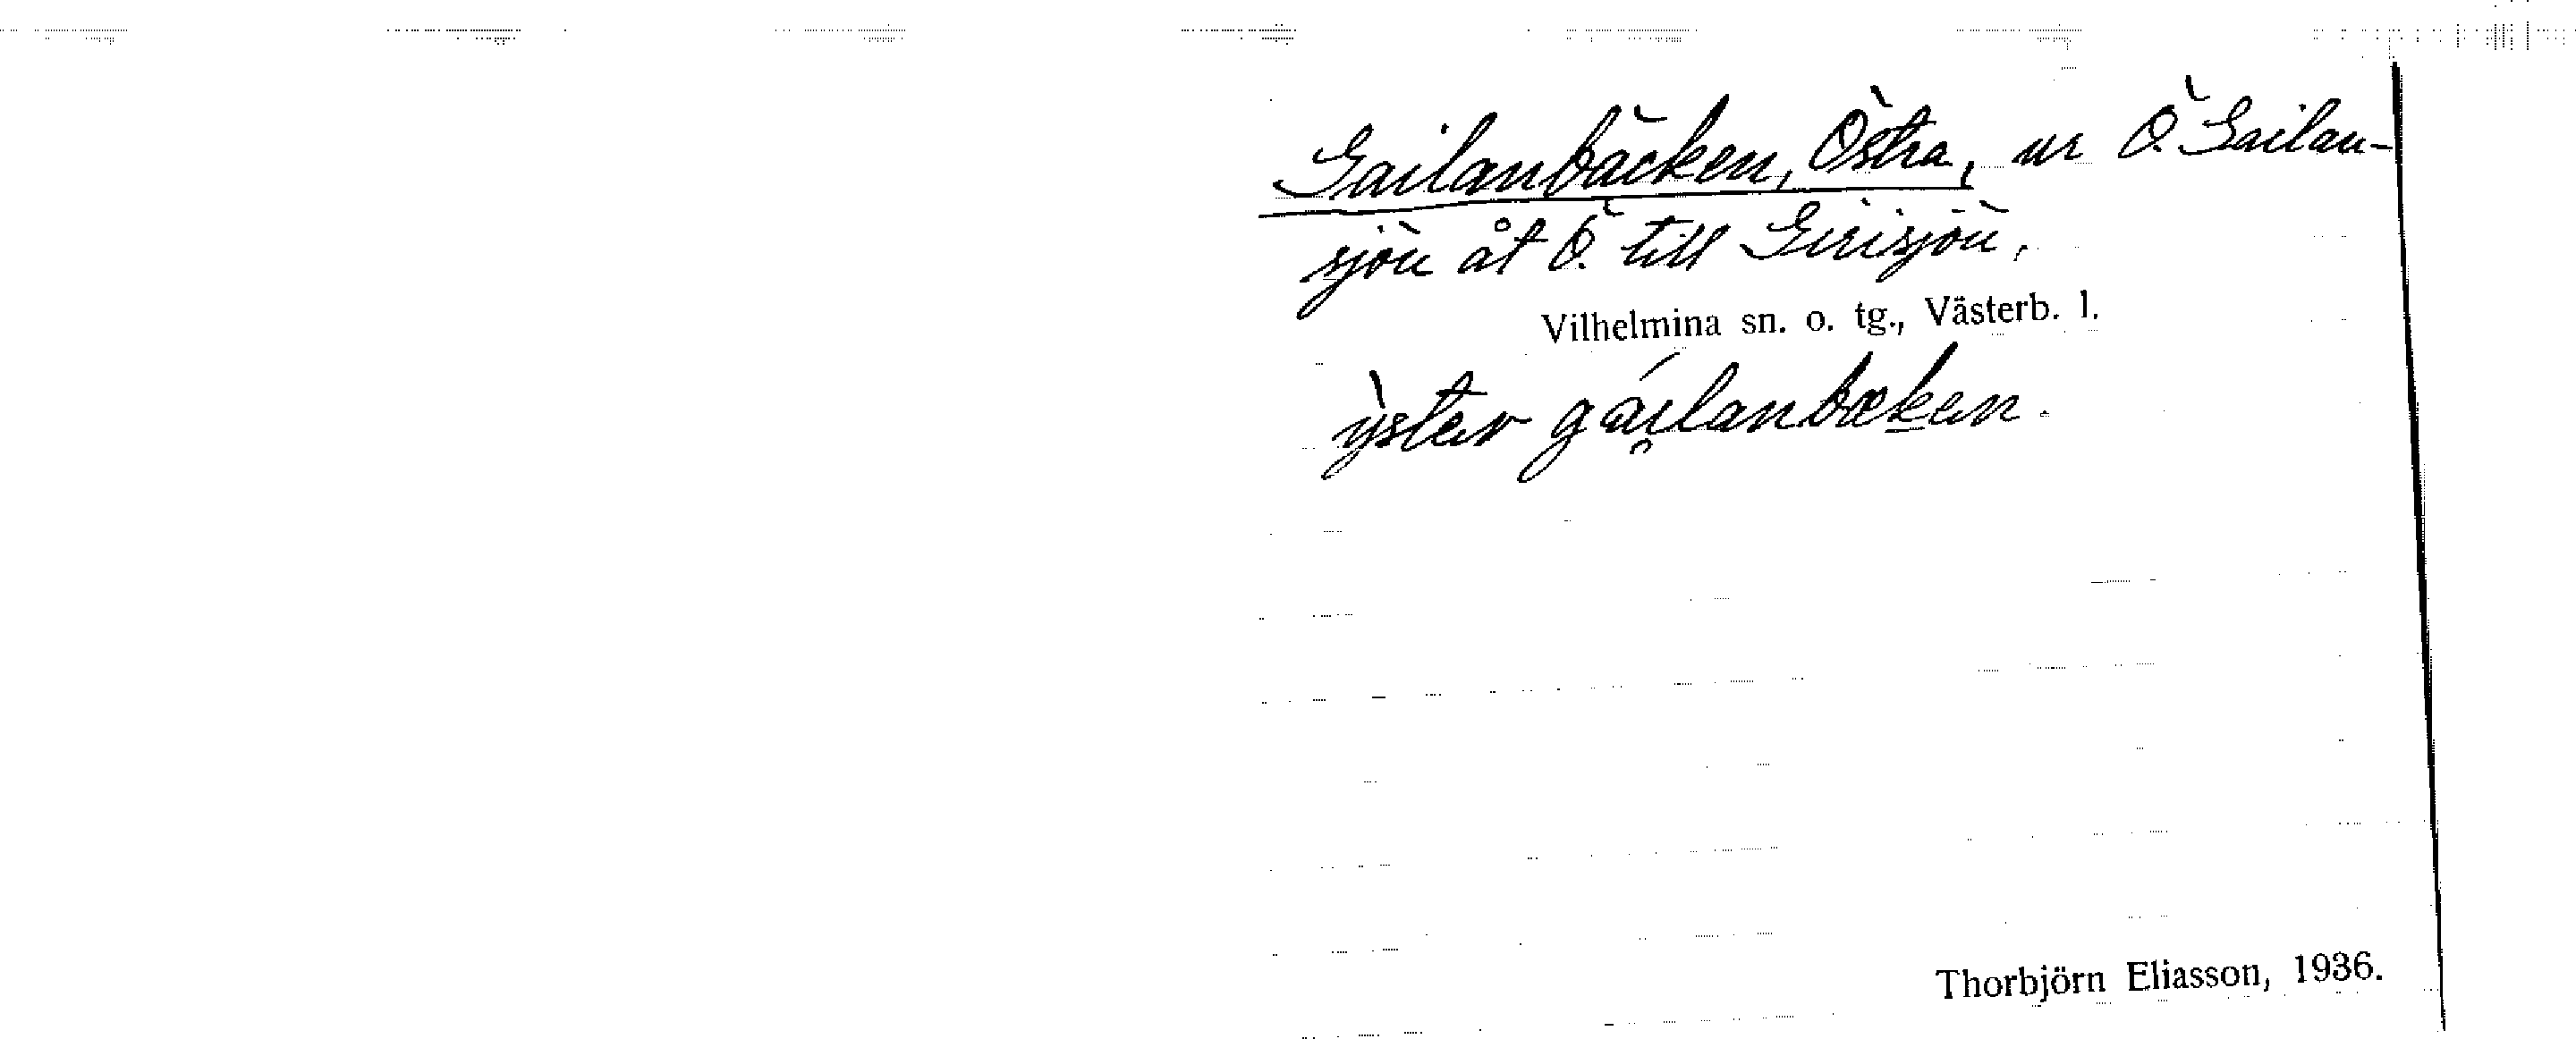 Gailanbäcken, Östra, ur Ö. Gailan-
sjön åt Ö. till Girisjön.
Vilhelmina sn. o. tg., Västerb. l.
ỳster gái̯lanbæken.
Thorbjörn Eliasson, 1936.